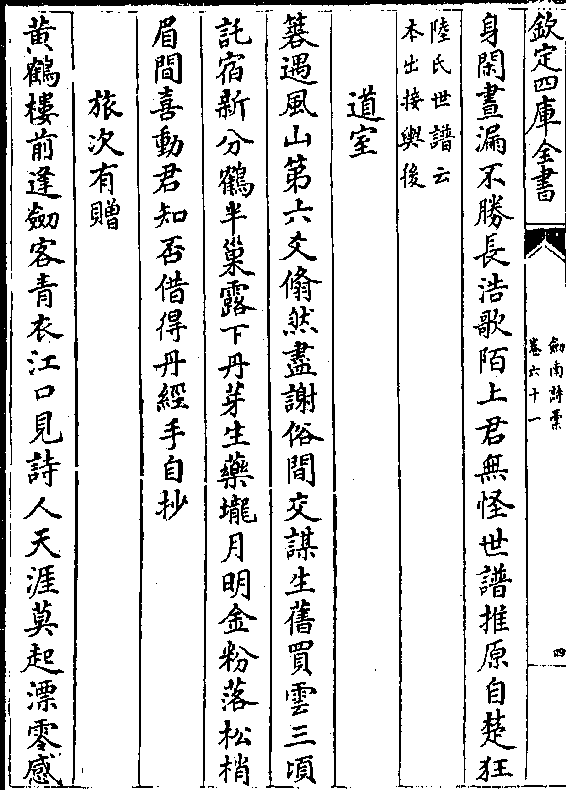 欽定四庫全書
劒南詩稾
卷六十一
四
身閑晝漏不勝長浩歌陌上君無怪世譜推原自楚狂
陸氏世譜云
本出接輿後
道室
筮遇風山第六爻翛然盡謝俗間交謀生舊買雲三頃
託宿新分鶴半巢露下丹芽生藥壠月明金粉落松梢
眉間喜動君知否借得丹經手自抄
旅次有贈
黄鶴樓前逢劒客青衣江口見詩人天涯莫起漂零感